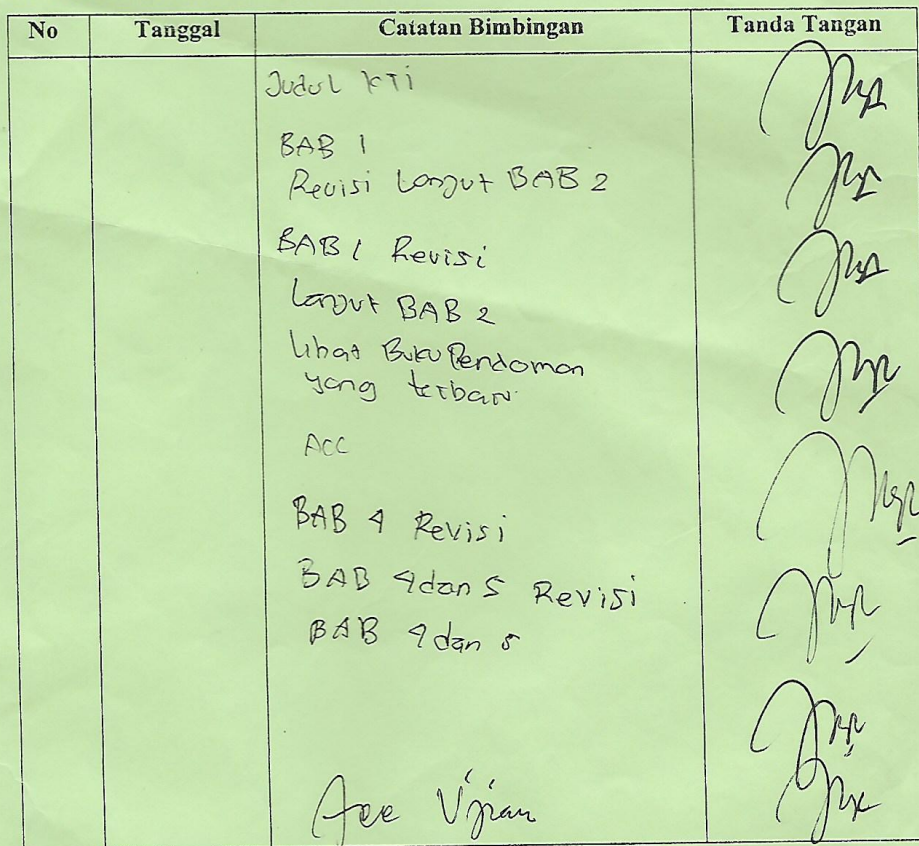 No Tanggal Catatan Bimbingan Tanda Tangan
Judul KTI
BAB 1
Revisi Lanjut BAB 2
BAB 1 Revisi
Lanjut BAB 2
Lihat Buku Pendoman
yang terbaru
ACC
BAB 4 Revisi
BAB 4 dan 5 Revisi
BAB 4 dan 5
Acc Ujian